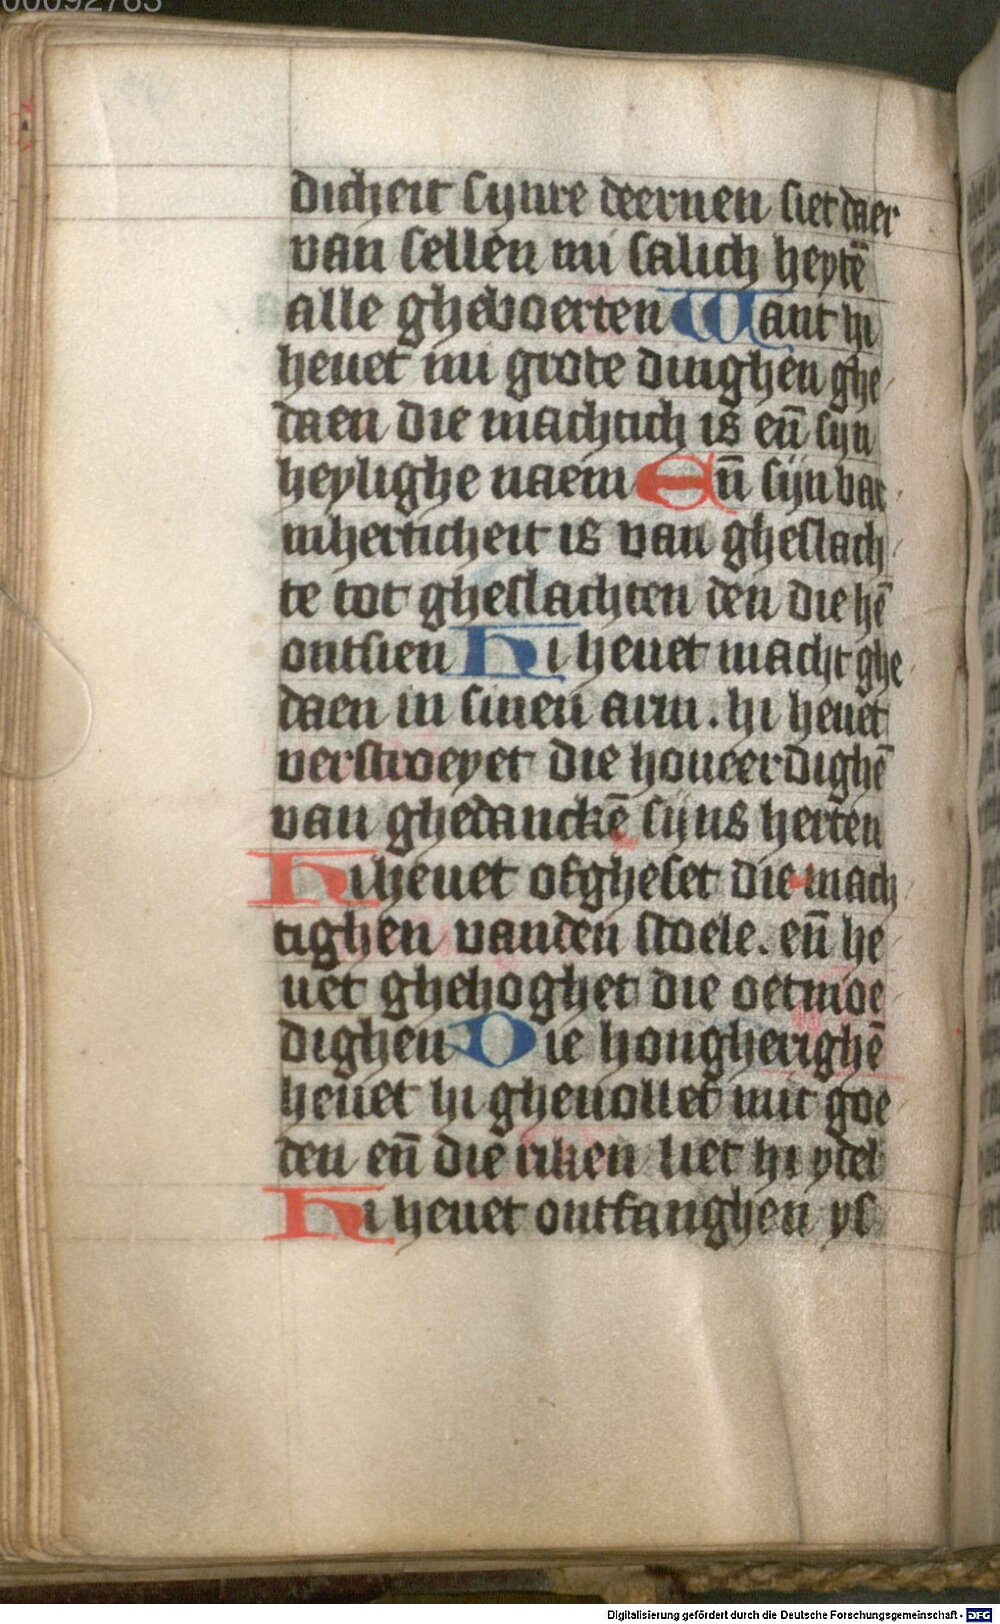 00092783
dicheit synre deernen siet daer
van sellen mi salich heytē
alle gheboerten Want hi
heuet mi grote dinghen ghe
daen die machtich is eñ syn
heylighe naem Eñ sijn bar
mherticheit is van gheslach
te tot gheslachten den die hē
ontsien Hi heuet macht ghe
daen in sinen arm . hi heuet
verstroeyet die houeerdighē
van ghedanckē sijns herten
Hi heuet ofgheset die mach
tighen vanden stoele . eñ he
uet ghehoghet die oetmoe
dighen Die hongherighē
heuet hi gheuollet mit goe
den eñ die riken liet hi ydel
Hi heuet ontfanghen ys
Digitalisierung gefördert durch die Deutsche Forschungsgemeinschaft - DFG